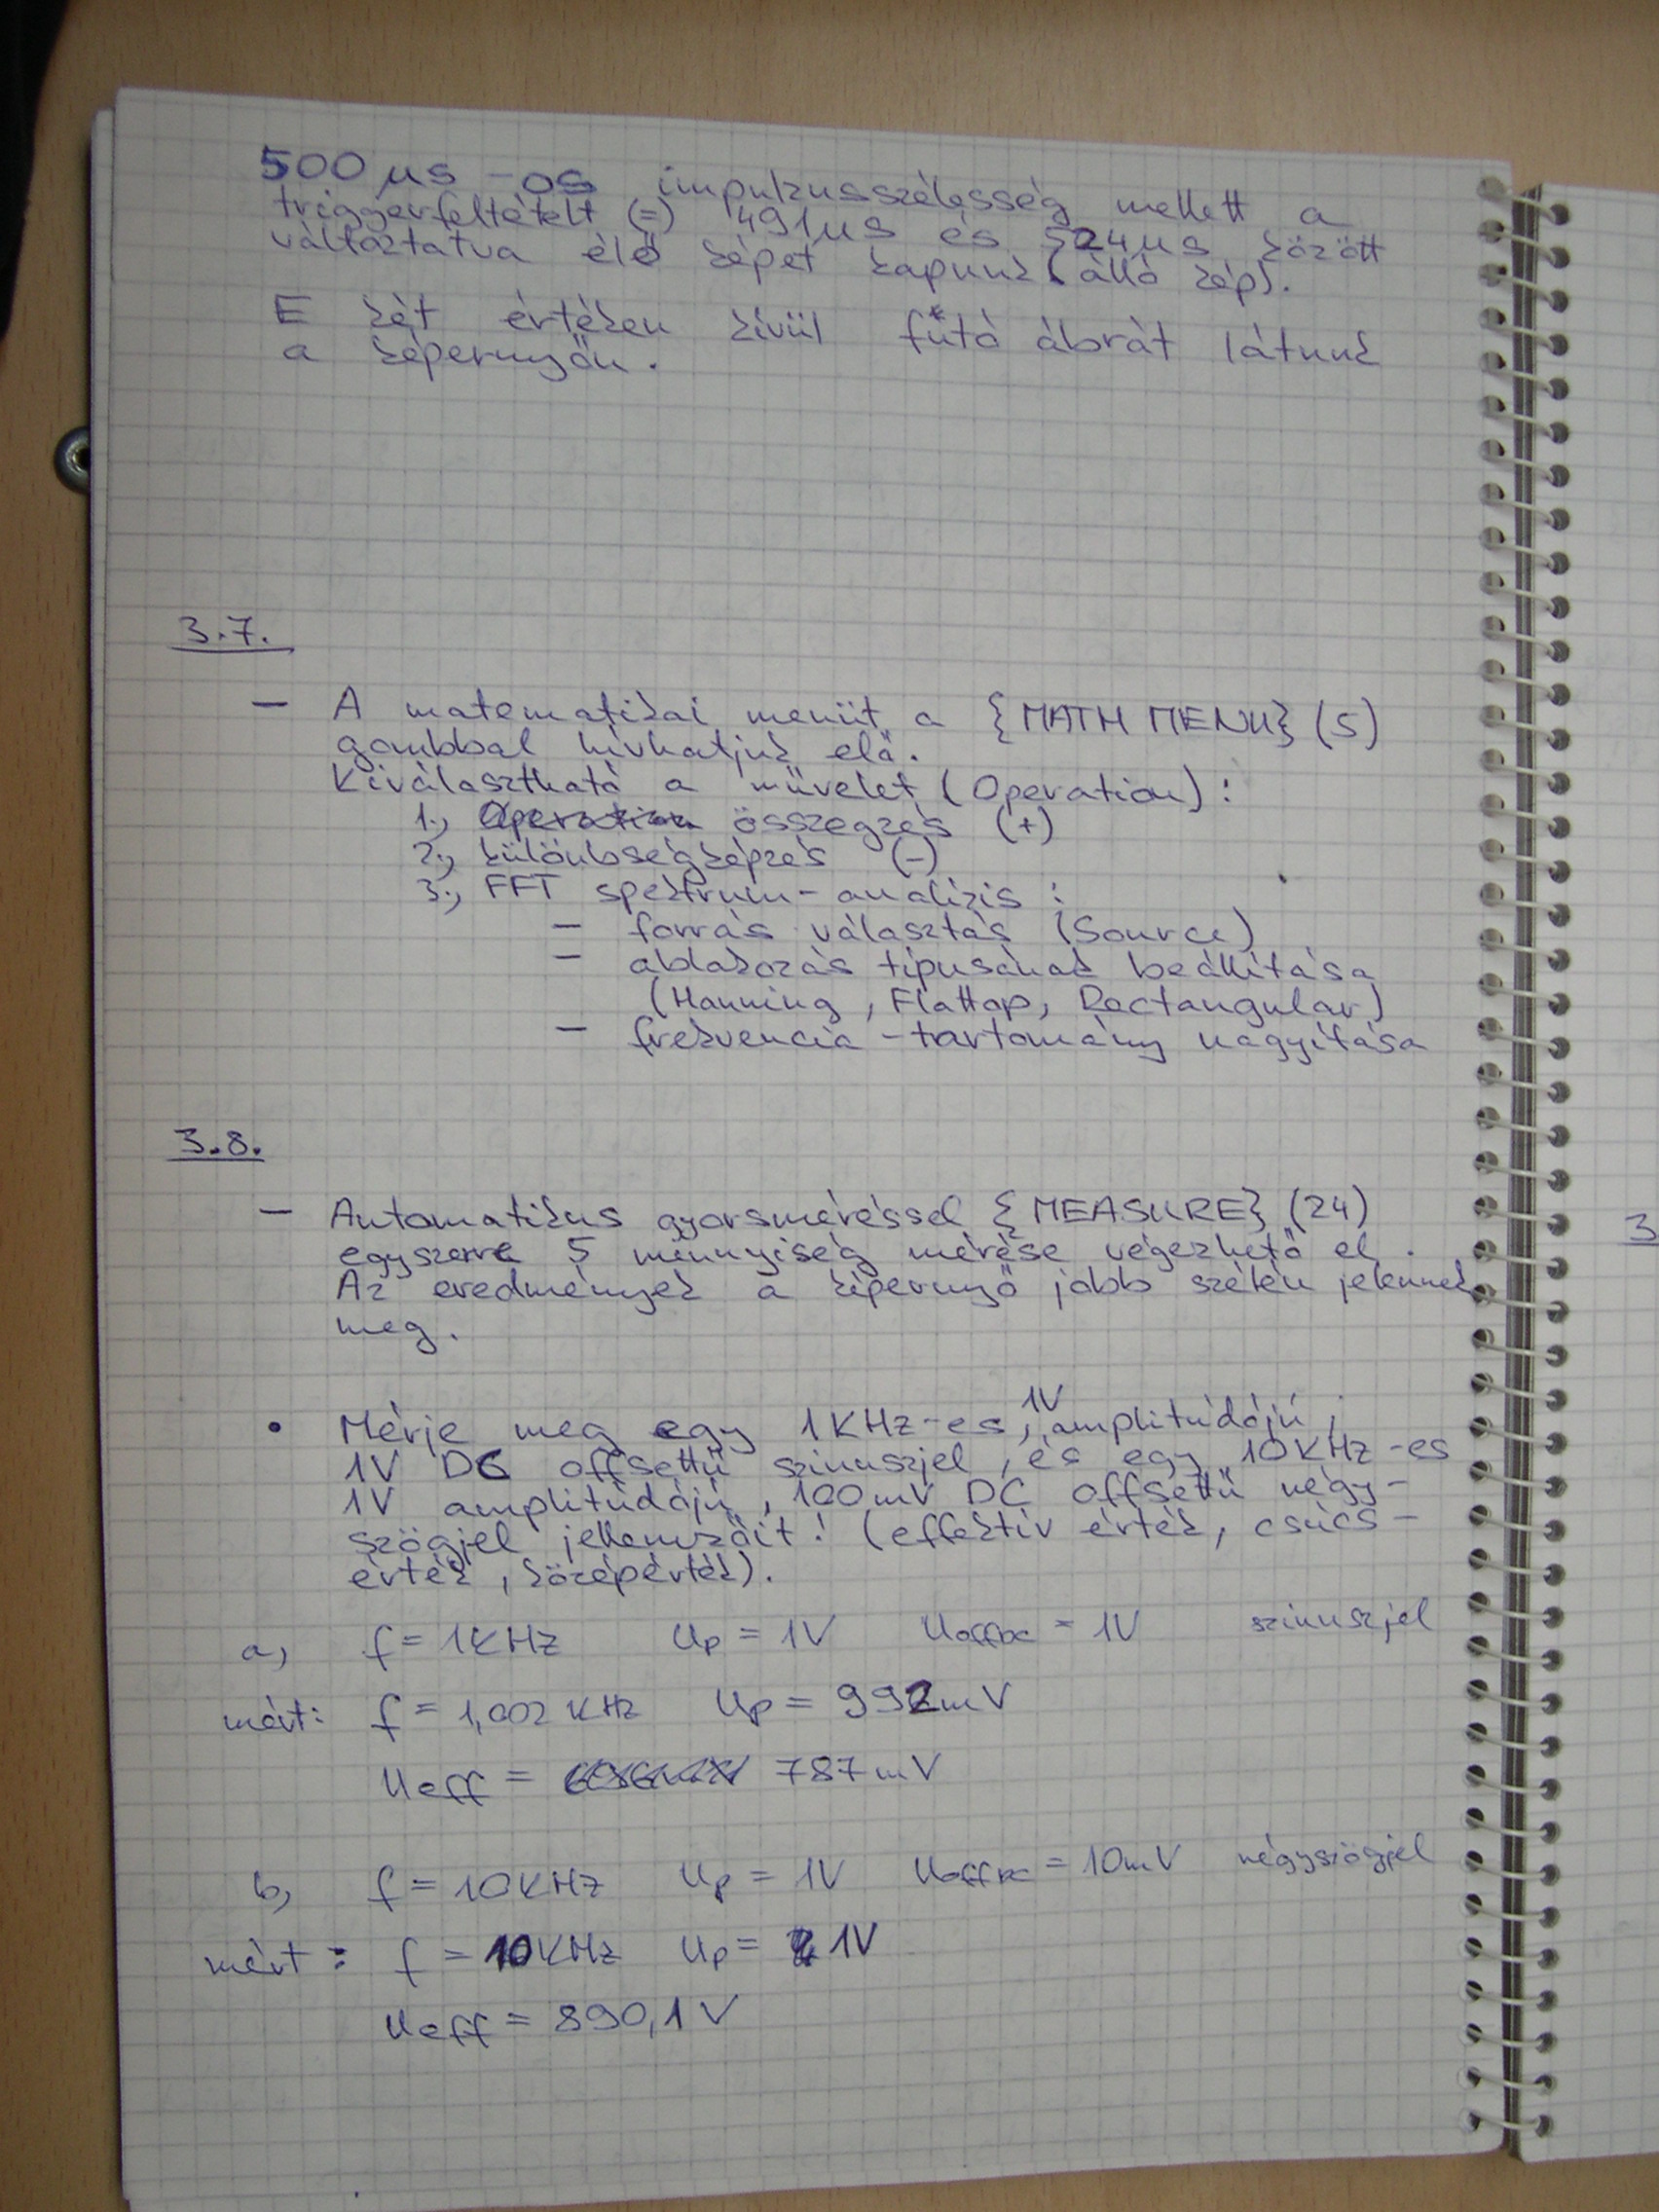 500 μs -os impulzusszélesség mellett a
triggerfeltételt (=) 491μs és 524μs között
változtatva élő képet kapunk (álló kép).
E két értéken kívül futó ábrát látunk
a képernyőn.
3.7.
- A matematikai menüt a {MATH MENU} (5)
gombbal hívhatjuk elő.
Kiválasztható a művelet (Operation):
1., Operation összegzés (+)
2., különbségképzés (-)
3., FFT spektrum-analízis:
- forrás választás (Source)
- ablakozás típusának beállítása
(Hanning, Flattop, Rectangular)
- frekvencia-tartomány nagyítása
3.8.
- Automatikus gyorsméréssel {MEASURE} (24)
egyszerre 5 mennyiség mérése végezhető el.
Az eredmények a képernyő jobb szélén jelennek
meg.
• Mérje meg egy 1KHz-es, 1V amplitúdójú,
1V DC offsettű szinuszjel, és egy 10KHz-es
1V amplitúdójú, 100mV DC offsettű négy-
szögjel jellemzőit! (effektív érték, csúcs-
érték, középérték).
a, f = 1KHz Up = 1V UoffDC = 1V szinuszjel
mért: f = 1,002 KHz Up = 992mV
Ueff = 787mV
b, f = 10KHz Up = 1V UoffDC = 10mV négyszögjel
mért: f = 10KHz Up = 1V
Ueff = 890,1 V
3